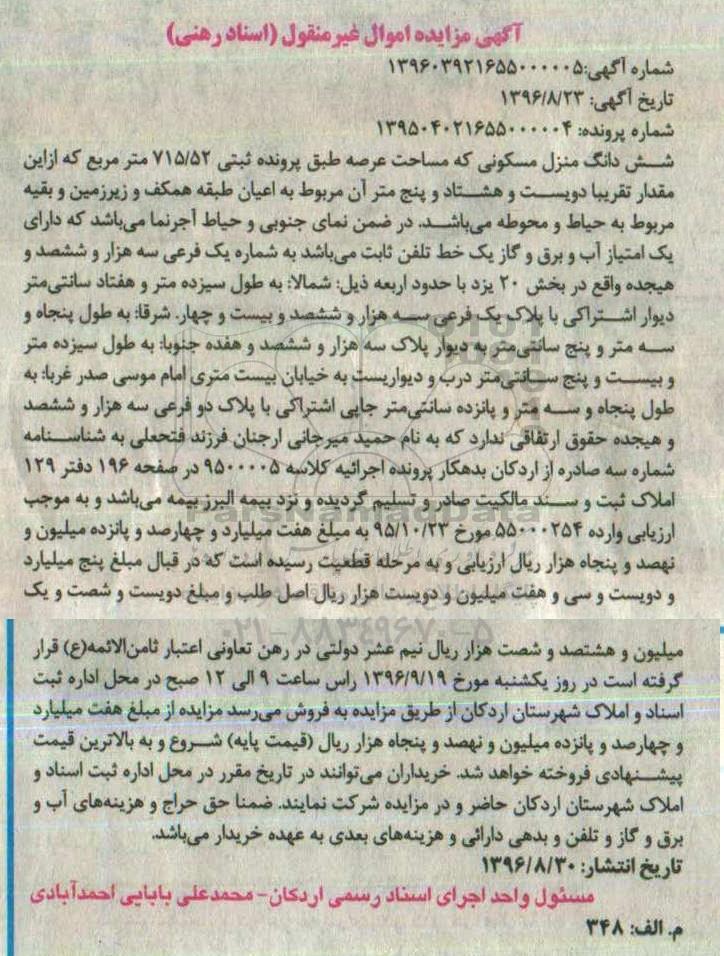 آگهی مزایده اموال غیرمنقول (اسناد رهنی)
شماره آگهی:۱۳۹۶۰۳۹۲۱۶۵۵۰۰۰۰۰۵
تاریخ آگهی: ۱۳۹۶/۸/۲۳
شماره پرونده: ۱۳۹۵۰۴۰۲۱۶۵۵۰۰۰۰۰۴
شش دانگ منزل مسکونی که مساحت عرصه طبق پرونده ثبتی ۷۱۵/۵۲ متر مربع که ازاین
مقدار تقریبا دویست و هشتاد و پنج متر آن مربوط به اعیان طبقه همکف و زیرزمین و بقیه
مربوط به حیاط و محوطه می‌باشد. در ضمن نمای جنوبی و حیاط آجرنما می‌باشد که دارای
یک امتیاز آب و برق و گاز یک خط تلفن ثابت می‌باشد به شماره یک فرعی سه هزار و ششصد و
هیجده واقع در بخش ۲۰ یزد با حدود اربعه ذیل: شمالا: به طول سیزده متر و هفتاد سانتی‌متر
دیوار اشتراکی با پلاک یک فرعی سه هزار و ششصد و بیست و چهار. شرقا: به طول پنجاه و
سه متر و پنج سانتی‌متر به دیوار پلاک سه هزار و ششصد و هفده جنوبا: به طول سیزده متر
و بیست و پنج سانتی‌متر درب و دیواریست به خیابان بیست متری امام موسی صدر غربا: به
طول پنجاه و سه متر و پانزده سانتی‌متر جایی اشتراکی با پلاک دو فرعی سه هزار و ششصد
و هیجده حقوق ارتفاقی ندارد که به نام حمید میرجانی ارجنان فرزند فتحعلی به شناسنامه
شماره سه صادره از اردکان بدهکار پرونده اجرائیه کلاسه ۹۵۰۰۰۰۵ در صفحه ۱۹۶ دفتر ۱۲۹
املاک ثبت و سند مالکیت صادر و تسلیم گردیده و نزد بیمه البرز بیمه می‌باشد و به موجب
ارزیابی وارده ۵۵۰۰۰۲۵۴ مورخ ۹۵/۱۰/۲۳ به مبلغ هفت میلیارد و چهارصد و پانزده میلیون و
نهصد و پنجاه هزار ریال ارزیابی و به مرحله قطعیت رسیده است که در قبال مبلغ پنج میلیارد
و دویست و سی و هفت میلیون و دویست هزار ریال اصل طلب و مبلغ دویست و شصت و یک
میلیون و هشتصد و شصت هزار ریال نیم عشر دولتی در رهن تعاونی اعتبار ثامن‌الائمه(ع) قرار
گرفته است در روز یکشنبه مورخ ۱۳۹۶/۹/۱۹ راس ساعت ۹ الی ۱۲ صبح در محل اداره ثبت
اسناد و املاک شهرستان اردکان از طریق مزایده به فروش می‌رسد مزایده از مبلغ هفت میلیارد
و چهارصد و پانزده میلیون و نهصد و پنجاه هزار ریال (قیمت پایه) شروع و به بالاترین قیمت
پیشنهادی فروخته خواهد شد. خریداران می‌توانند در تاریخ مقرر در محل اداره ثبت اسناد و
املاک شهرستان اردکان حاضر و در مزایده شرکت نمایند. ضمنا حق حراج و هزینه‌های آب و
برق و گاز و تلفن و بدهی دارائی و هزینه‌های بعدی به عهده خریدار می‌باشد.
تاریخ انتشار: ۱۳۹۶/۸/۳۰
مسئول واحد اجرای اسناد رسمی اردکان- محمدعلی بابایی احمدآبادی
م. الف: ۳۴۸
ParsNamadData
۰۲۱-۸۸۳۴۹۶۷۰-۵